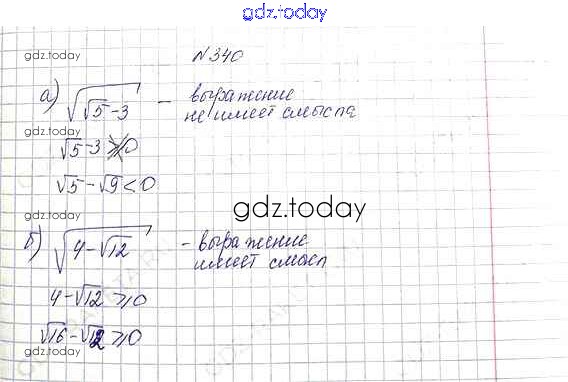 gdz.today
gdz.today
N 340
а) √(√5 - 3) - выражение
не имеет смысла
gdz.today
√5 - 3 ≥ 0
√5 - √9 < 0
gdz.today
б) √(4 - √12) - выражение
имеет смысл
4 - √12 ≥ 0
√16 - √12 ≥ 0
gdz.today